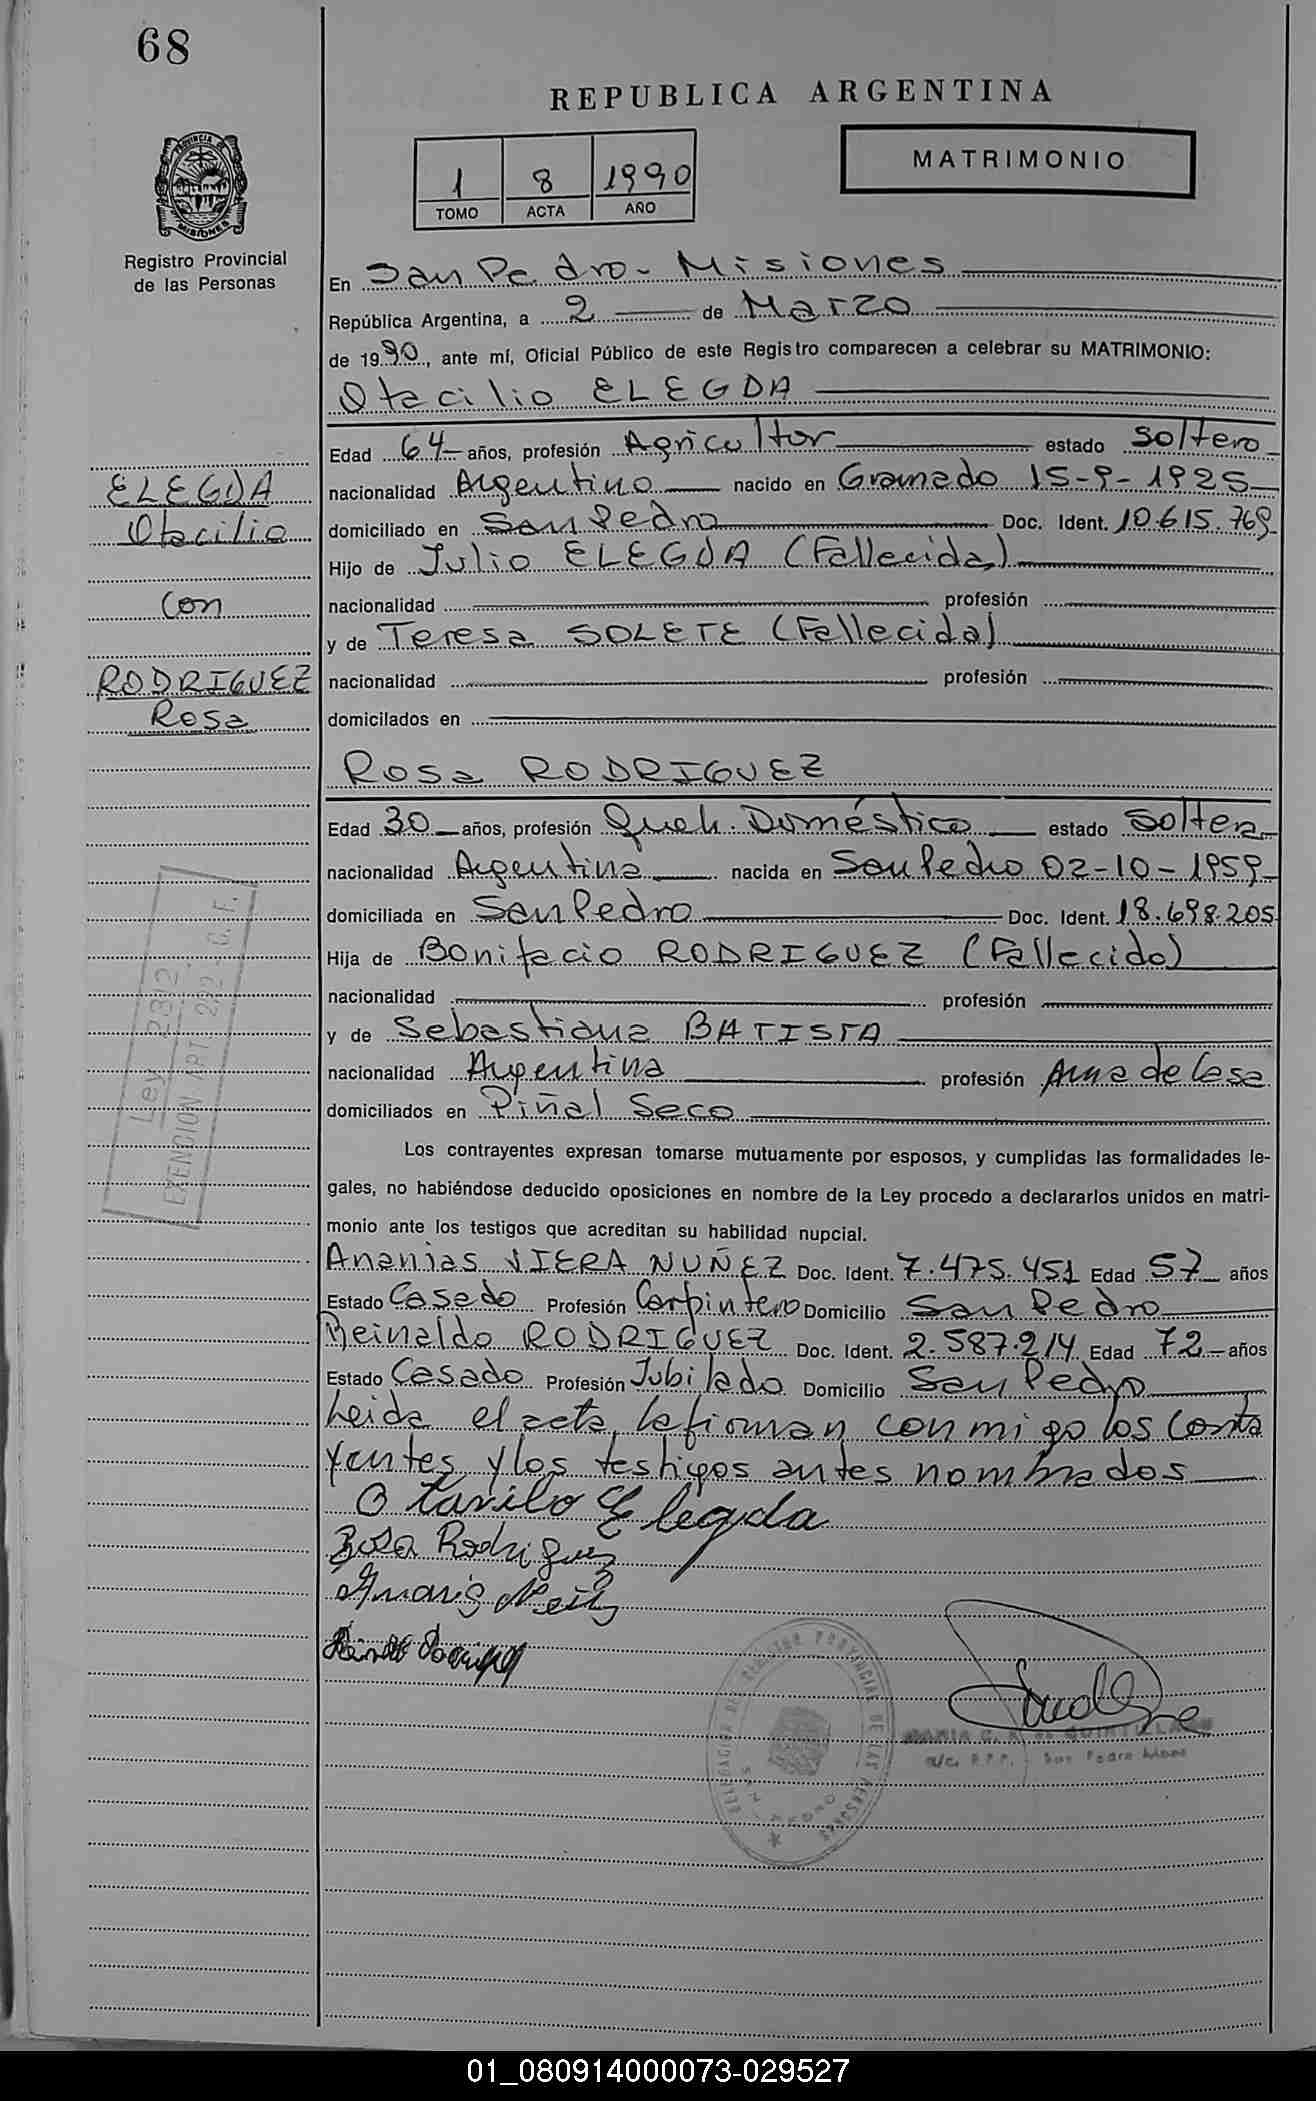 68
REPUBLICA ARGENTINA
MATRIMONIO
1 8 1990
TOMO ACTA AÑO
PROVINCIA DE
MISIONES
Registro Provincial
de las Personas
En San Pedro - Misiones
República Argentina, a 2 de Marzo
de 1990, ante mí, Oficial Público de este Registro comparecen a celebrar su MATRIMONIO:
Otacilio ELEGDA
Edad 64 años, profesión Agricultor estado soltero
nacionalidad Argentino nacido en Gramado 15-9-1925
domiciliado en San Pedro Doc. Ident. 10.615.769
Hijo de Julio ELEGDA (Fallecida)
nacionalidad profesión
y de Teresa SOLETE (Fallecida)
nacionalidad profesión
domicilados en
ELEGDA
Otacilio
con
RODRIGUEZ
Rosa
Rosa RODRIGUEZ
Edad 30 años, profesión Queh. Doméstico estado soltera
nacionalidad Argentina nacida en San Pedro 02-10-1959
domiciliada en San Pedro Doc. Ident. 18.698.205
Hija de Bonifacio RODRIGUEZ (Fallecido)
nacionalidad profesión
y de Sebastiana BATISTA
nacionalidad Argentina profesión Ama de Casa
domiciliados en Piñal Seco
Ley 2312
EXENCION ART. 232 - C. F.
Los contrayentes expresan tomarse mutuamente por esposos, y cumplidas las formalidades le-
gales, no habiéndose deducido oposiciones en nombre de la Ley procedo a declararlos unidos en matri-
monio ante los testigos que acreditan su habilidad nupcial.
Ananias VIERA NUÑEZ Doc. Ident. 7.475.451 Edad 57 años
Estado Casado Profesión Carpintero Domicilio San Pedro
Reinaldo RODRIGUEZ Doc. Ident. 2.587.214 Edad 72 años
Estado Casado Profesión Jubilado Domicilio San Pedro
Leida el acta, la firman conmigo los contra
yentes y los testigos antes nombrados
Otavilo Elegda
Rosa Rodriguez
DELEGACION DEL REGISTRO PROVINCIAL DE LAS PERSONAS
SAN PEDRO
MARIA C. DE QUINTILLAN
a/c. R.P.P. San Pedro Mnes
01_080914000073-029527